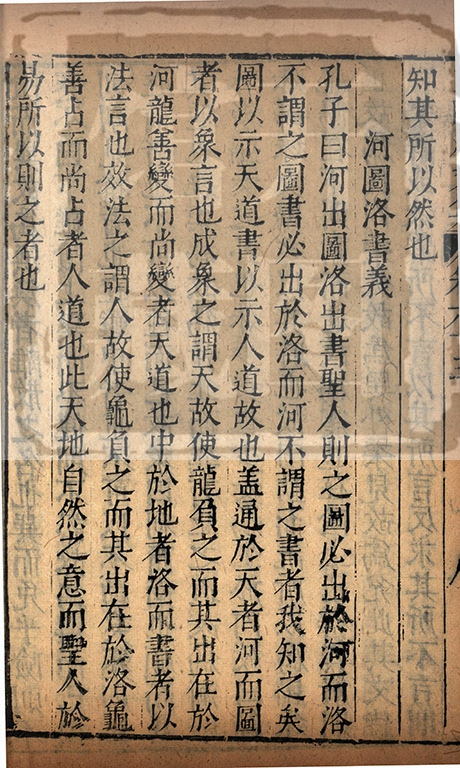 知其所以然也
河圖洛書義
孔子曰河出圖洛出書聖人則之圖必出於河而洛
不謂之圖書必出於洛而河不謂之書者我知之矣
圖以示天道書以示人道故也蓋通於天者河而圖
者以象言也成象之謂天故使龍負之而其出在於
河龍善變而尚變者天道也中於地者洛而書者以
法言也效法之謂人故使龜負之而其出在於洛龜
善占而尚占者人道也此天地自然之意而聖人於
易所以則之者也